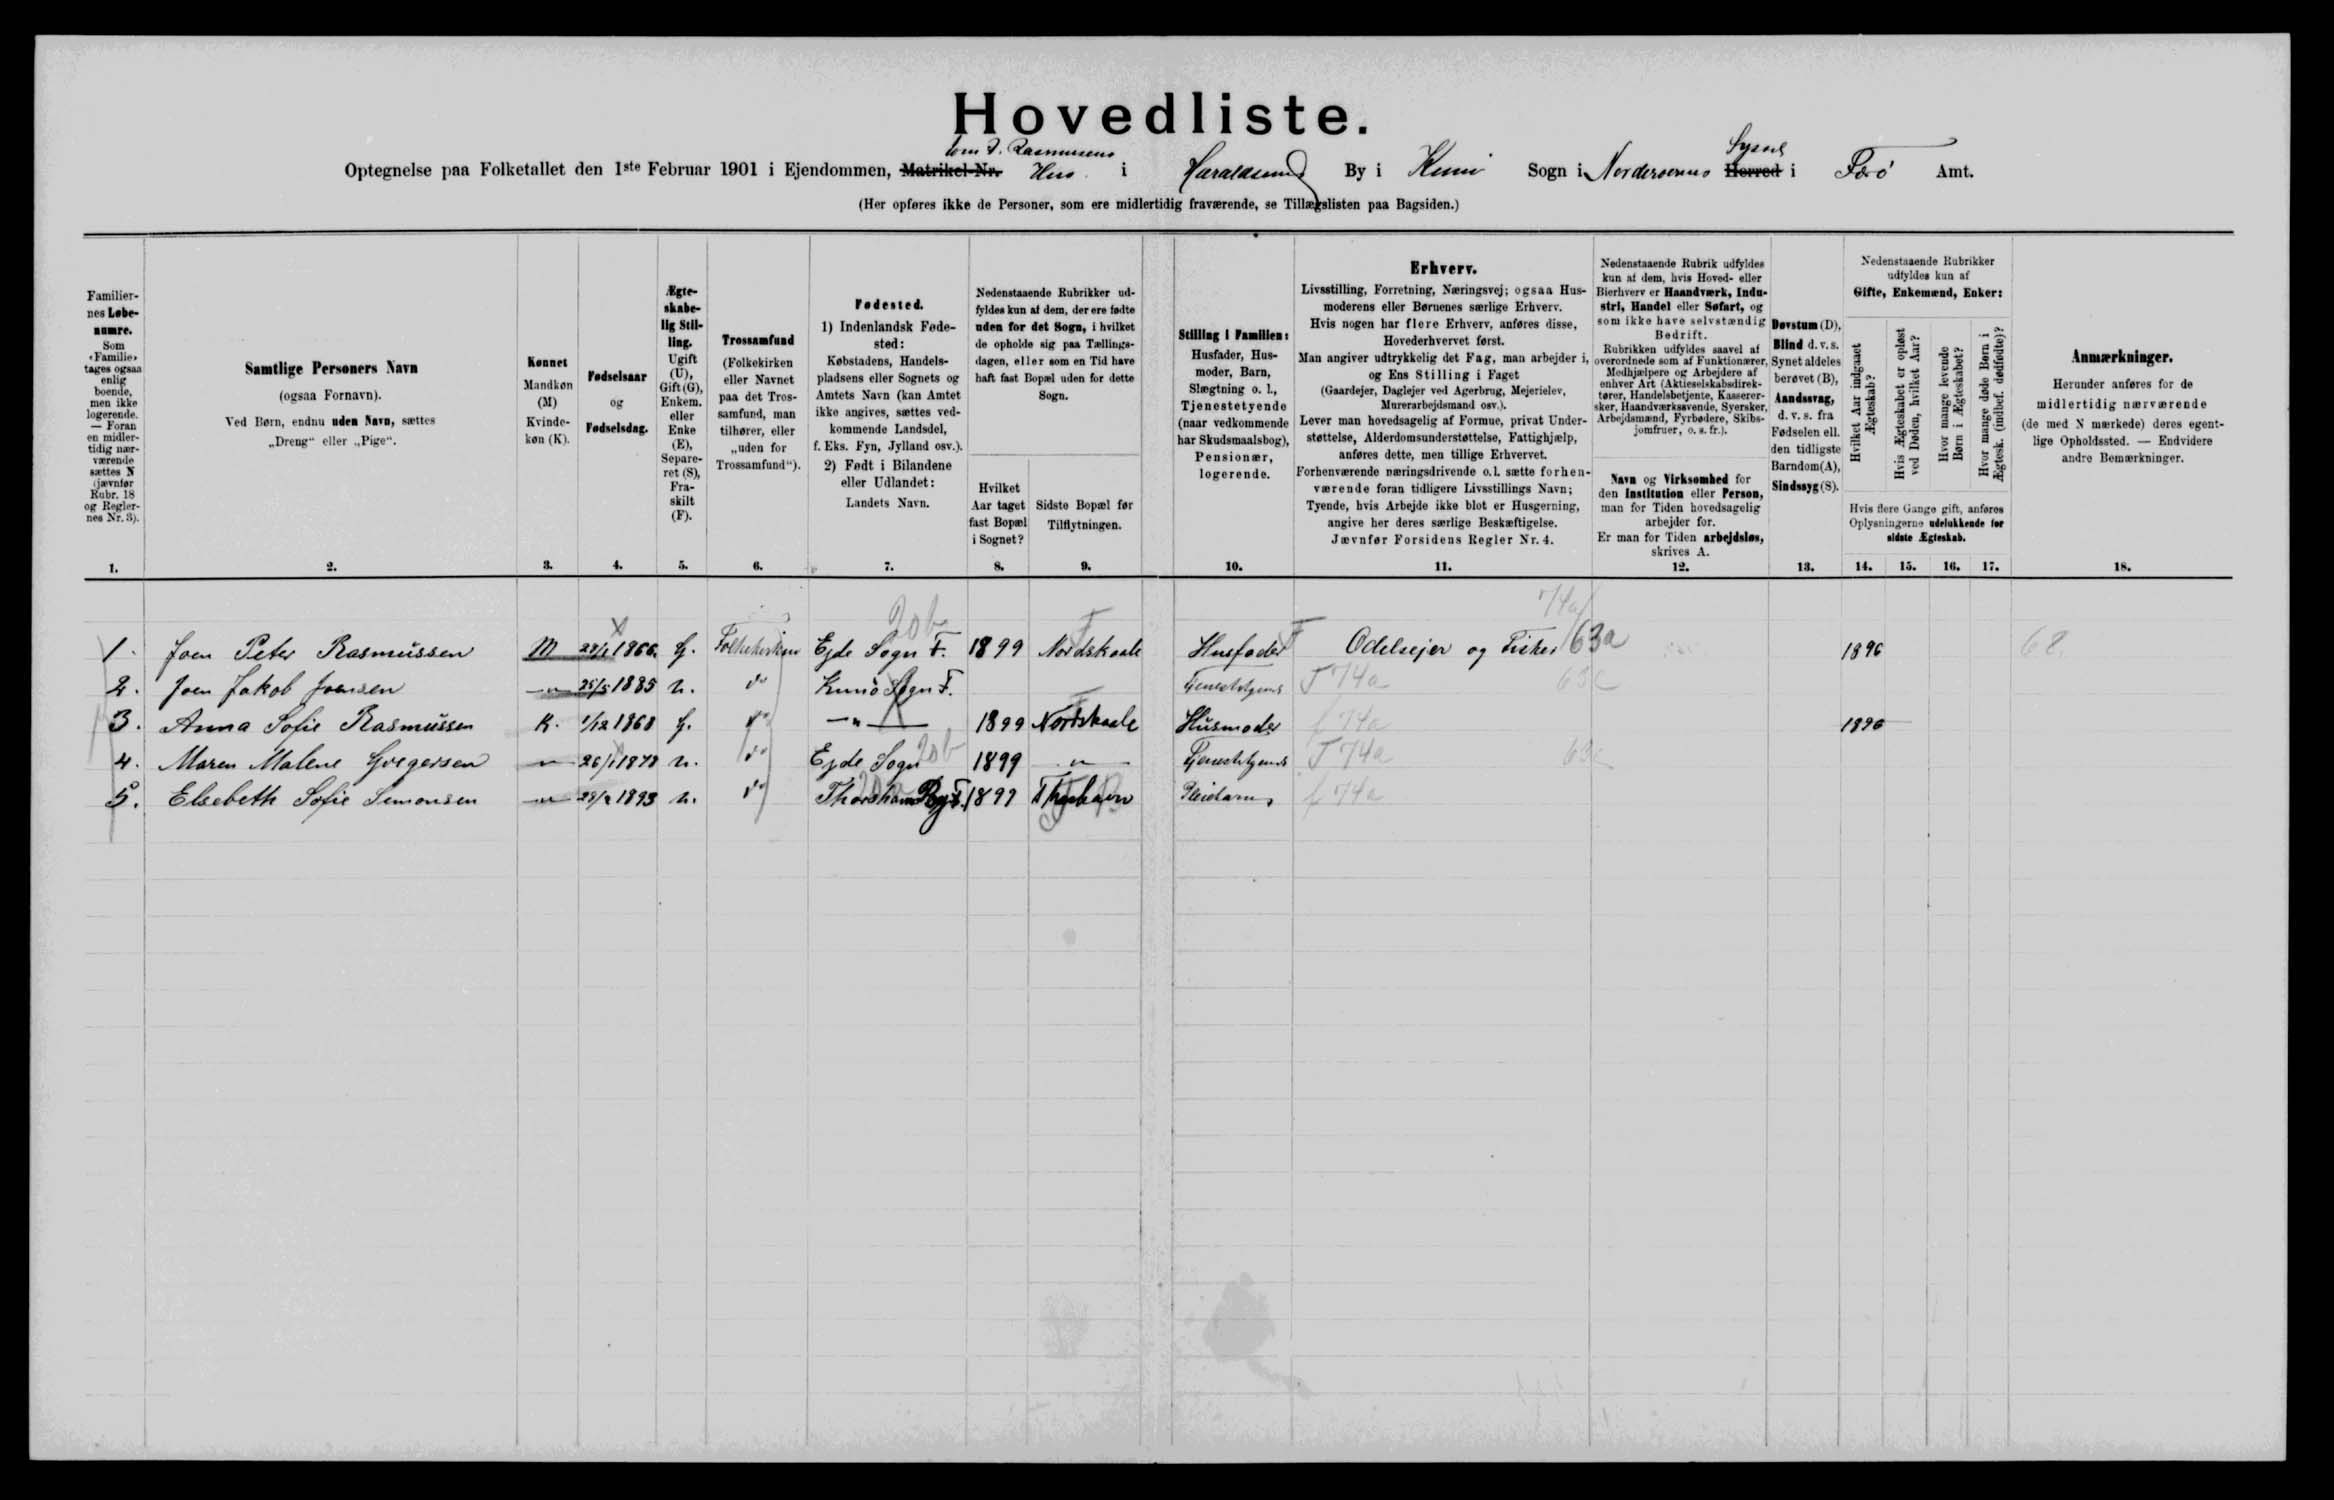 Hovedliste.
Rasmussens
Syssel
Optegnelse paa Folketallet den 1ste Februar 1901 i Ejendommen, Matrikel-Nr. Hus i Haraldssund By i Kunø Sogn i Norderøernes Herred i Færø Amt.
(Her opføres ikke de Personer, som ere midlertidig fraværende, se Tillægslisten paa Bagsiden.)
Familier-
nes Løbe-
numre.
Som
«Familie»
tages ogsaa
enlig
boende,
men ikke
logerende.
— Foran
en midler-
tidig nær-
værende
sættes N
(jævnfør
Rubr. 18
og Regler-
nes Nr. 3).
1.
Samtlige Personers Navn
(ogsaa Fornavn).
Ved Børn, endnu uden Navn, sættes
„Dreng“ eller „Pige“.
2.
Kønnet
Mandkøn
(M)
Kvinde-
køn (K).
3.
Fødselsaar
og
Fødselsdag.
4.
Ægte-
skabe-
lig Stil-
ling.
Ugift
(U),
Gift (G),
Enkem.
eller
Enke
(E),
Separe-
ret (S),
Fra-
skilt
(F).
5.
Trossamfund
(Folkekirken
eller Navnet
paa det Tros-
samfund, man
tilhører, eller
„uden for
Trossamfund“).
6.
Fødested.
1) Indenlandsk Føde-
sted:
Købstadens, Handels-
pladsens eller Sognets og
Amtets Navn (kan Amtet
ikke angives, sættes ved-
kommende Landsdel,
f. Eks. Fyn, Jylland osv.).
2) Født i Bilandene
eller Udlandet:
Landets Navn.
7.
Nedenstaaende Rubrikker ud-
fyldes kun af dem, der ere fødte
uden for det Sogn, i hvilket
de opholde sig paa Tællings-
dagen, eller som en Tid have
haft fast Bopæl uden for dette
Sogn.
Hvilket
Aar taget
fast Bopæl
i Sognet?
8.
Sidste Bopæl før
Tilflytningen.
9.
Stilling i Familien:
Husfader, Hus-
moder, Barn,
Slægtning o. l.,
Tjenestetyende
(naar vedkommende
har Skudsmaalsbog),
Pensionær,
logerende.
10.
Erhverv.
Livsstilling, Forretning, Næringsvej; ogsaa Hus-
moderens eller Børnenes særlige Erhverv.
Hvis nogen har flere Erhverv, anføres disse,
Hovederhvervet først.
Man angiver udtrykkelig det Fag, man arbejder i,
og Ens Stilling i Faget
(Gaardejer, Daglejer ved Agerbrug, Mejerielev,
Murerarbejdsmand osv.).
Lever man hovedsagelig af Formue, privat Under-
støttelse, Alderdomsunderstøttelse, Fattighjælp,
anføres dette, men tillige Erhvervet.
Forhenværende næringsdrivende o. l. sætte forhen-
værende foran tidligere Livsstillings Navn;
Tyende, hvis Arbejde ikke blot er Husgerning,
angive her deres særlige Beskæftigelse.
Jævnfør Forsidens Regler Nr. 4.
11.
Nedenstaaende Rubrik udfyldes
kun af dem, hvis Hoved- eller
Bierhverv er Haandværk, Indu-
stri, Handel eller Søfart, og
som ikke have selvstændig
Bedrift.
Rubrikken udfyldes saavel af
overordnede som af Funktionærer,
Medhjælpere og Arbejdere af
enhver Art (Aktieselskabsdirek-
tører, Handelsbetjente, Kasserer-
sker, Haandværkssvende, Syersker,
Arbejdsmænd, Fyrbødere, Skibs-
jomfruer, o. s. fr.).
Navn og Virksomhed for
den Institution eller Person,
man for Tiden hovedsagelig
arbejder for.
Er man for Tiden arbejdsløs,
skrives A.
12.
Døvstum (D),
Blind d. v. s.
Synet aldeles
berøvet (B),
Aandssvag,
d. v. s. fra
Fødselen ell.
den tidligste
Barndom (A),
Sindssyg (S).
13.
Nedenstaaende Rubrikker
udfyldes kun af
Gifte, Enkemænd, Enker:
Hvilket Aar indgaaet
Ægteskab?
Hvis Ægteskabet er opløst
ved Døden, hvilket Aar?
Hvor mange levende
Børn i Ægteskabet?
Hvor mange døde Børn i
Ægtesk. (indbef. dødfødte)?
Hvis flere Gange gift, anføres
Oplysningerne udelukkende for
sidste Ægteskab.
14. 15. 16. 17.
Anmærkninger.
Herunder anføres for de
midlertidig nærværende
(de med N mærkede) deres egent-
lige Opholdssted. — Endvidere
andre Bemærkninger.
18.
20b 74a
1. Joen Peter Rasmussen M 1866 G. Folkekirken Ejde Sogn F. 1899 Nordskaale Husfader F Odelsejer og Fisker 63a 1896 68.
2. Joen Jakob Joensen 25/5 1885 U. do Kunø Sogn F. Tjenestetyende 74a 63c
3. Anna Sofie Rasmussen K. 1/12 1868 G. do — " — 1899 Nordskaale Husmoder f 74a 1896
4. Maren Malene Gregersen " 26/1 1878 U. do Ejde Sogn 20b 1899 " Tjenestetyende 74a 63c
5. Elsebeth Sofie Simonsen " 1893 U. do Thorshavn By F. Thorshavn Pleiebarn f 74a